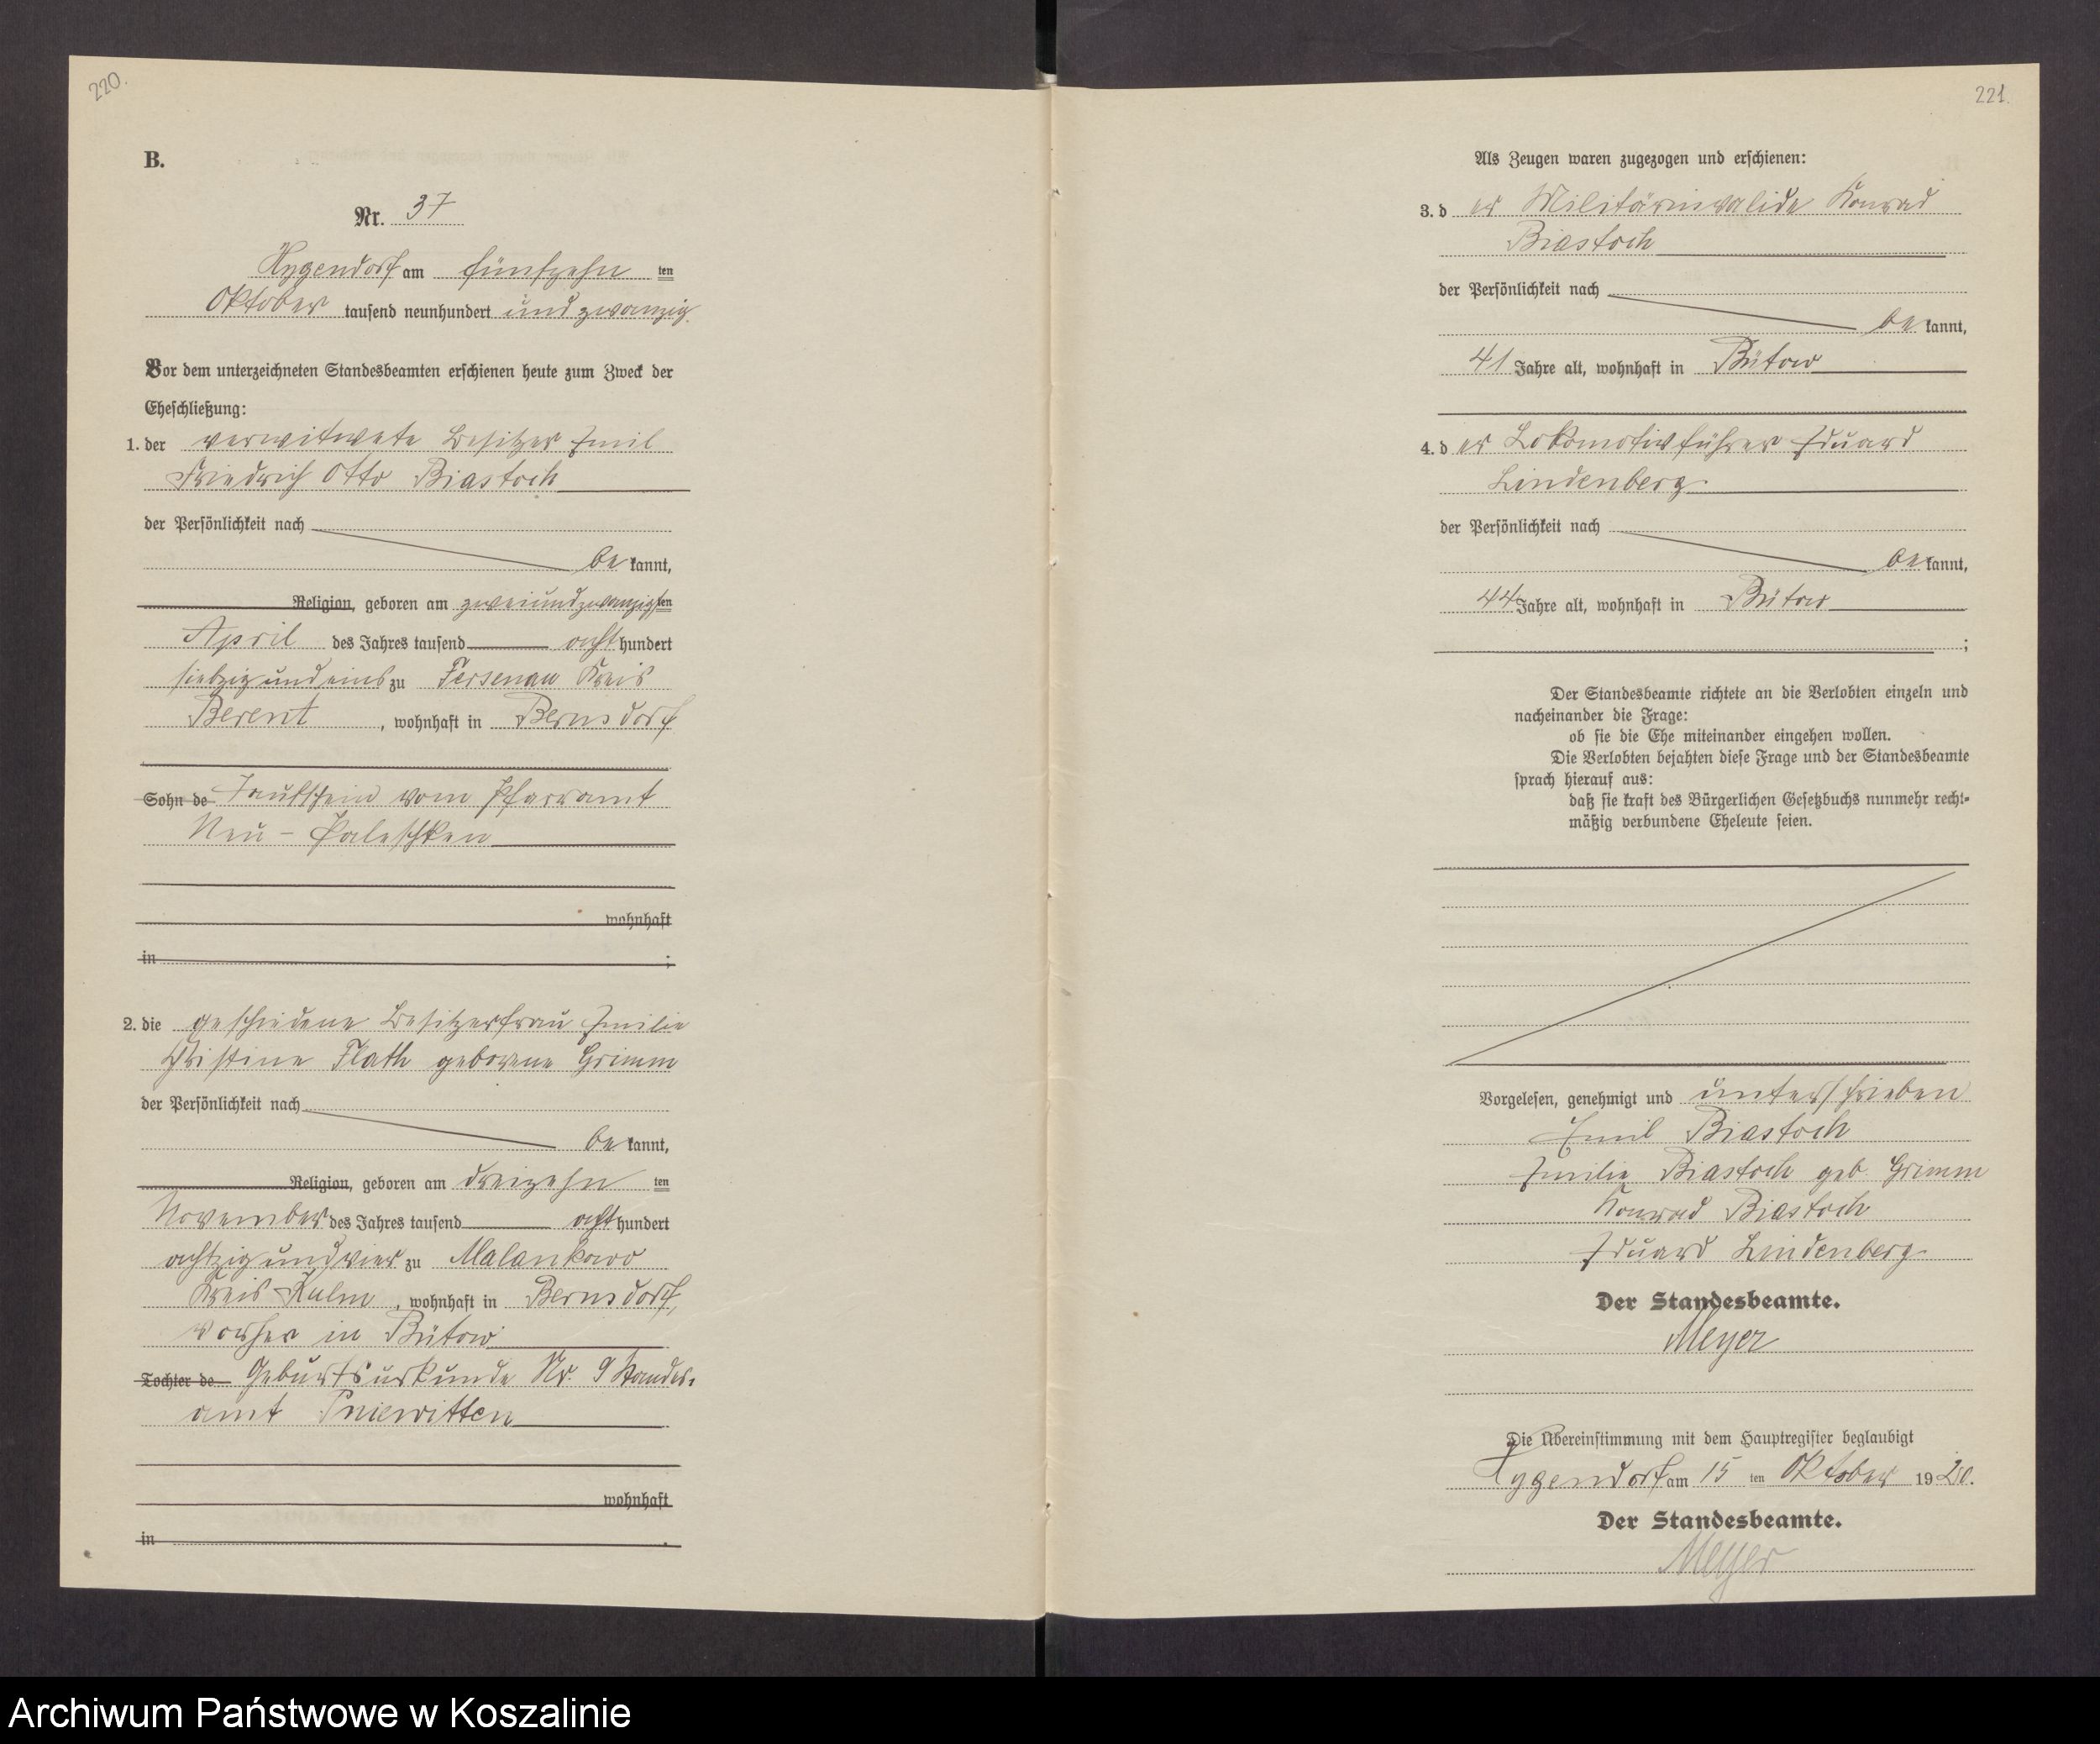 220.
B.
Nr. 37
Hygendorf am fünfzehn ten
Oktober tausend neunhundert und zwanzig.
Vor dem unterzeichneten Standesbeamten erschienen heute zum Zweck der
Eheschließung:
1. der verwitwete Besitzer Emil
Friedrich Otto Biastoch
der Persönlichkeit nach
be kannt,
Religion, geboren am zweiundzwanzigsten
April des Jahres tausend acht hundert
siebzig und eins zu Fersenau Kreis
Berent, wohnhaft in Bernsdorf
Sohn de Taufschein vom Pfarramt
Neu - Paleschken
wohnhaft
in ;
2. die geschiedene Besitzerfrau Emilie
Christine Flath geborene Grimm
der Persönlichkeit nach
be kannt,
Religion, geboren am dreizehn ten
November des Jahres tausend acht hundert
achtzig und vier zu Malankowo
Kreis Kulm, wohnhaft in Bernsdorf,
vorher in Bütow
Tochter de Geburtsurkunde Nr. 9 Standes-
amt Pniewitten
wohnhaft
in .
221.
Als Zeugen waren zugezogen und erschienen:
3. d er Militärinvalide Konrad
Biastoch
der Persönlichkeit nach
be kannt,
41 Jahre alt, wohnhaft in Bütow
4. d er Lokomotivführer Eduard
Lindenberg
der Persönlichkeit nach
be kannt,
44 Jahre alt, wohnhaft in Bütow
;
Der Standesbeamte richtete an die Verlobten einzeln und
nacheinander die Frage:
ob sie die Ehe miteinander eingehen wollen.
Die Verlobten bejahten diese Frage und der Standesbeamte
sprach hierauf aus:
daß sie kraft des Bürgerlichen Gesetzbuchs nunmehr recht-
mäßig verbundene Eheleute seien.
Vorgelesen, genehmigt und unterschrieben
Emil Biastoch
Emilie Biastoch geb. Grimm
Konrad Biastoch
Eduard Lindenberg
Der Standesbeamte.
Meyer
Die Übereinstimmung mit dem Hauptregister beglaubigt
Hygendorf am 15 ten Oktober 1920.
Der Standesbeamte.
Meyer
Archiwum Państwowe w Koszalinie